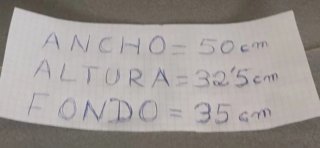 ANCHO = 50 cm
ALTURA = 32'5 cm
FONDO = 35 cm